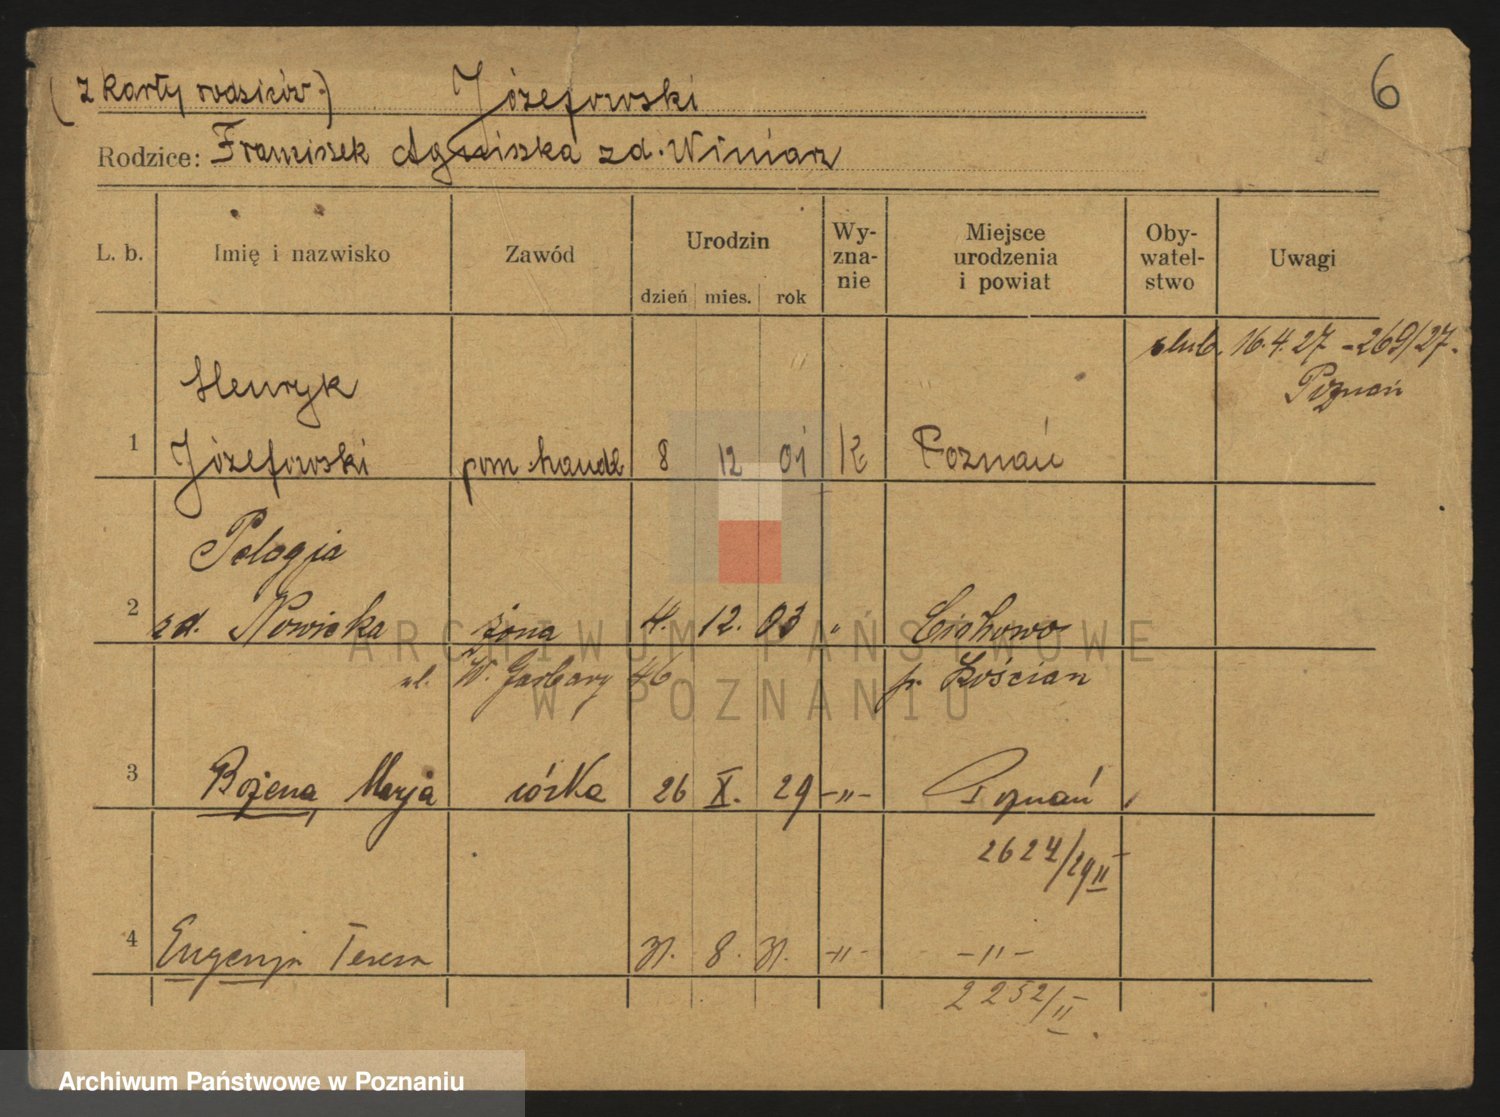 (z karty rodziców.) Józefowski
6
Rodzice: Franciszek Agnieszka zd. Winiarz
L. b. Imię i nazwisko Zawód Urodzin Wy-zna-nie Miejsce urodzenia i powiat Oby-watel-stwo Uwagi
dzień mies. rok
ślub. 16.4.27 - 269/27.
Poznań
Henryk
1 Józefowski pom. handl 8 12 01 k Poznań
Pelagja
2 zd. Nowicka żona 4. 12. 03 " Cichowo
ul. W. Garbary 46 p. Kościan
3 Bożena, Marja córka 26 X. 29 -"- Poznań
2624/29 II
4 Eugenja Teresa 31. 8. 31. -"- -"-
2252/II
ARCHIWUM PAŃSTWOWE
W POZNANIU
Archiwum Państwowe w Poznaniu